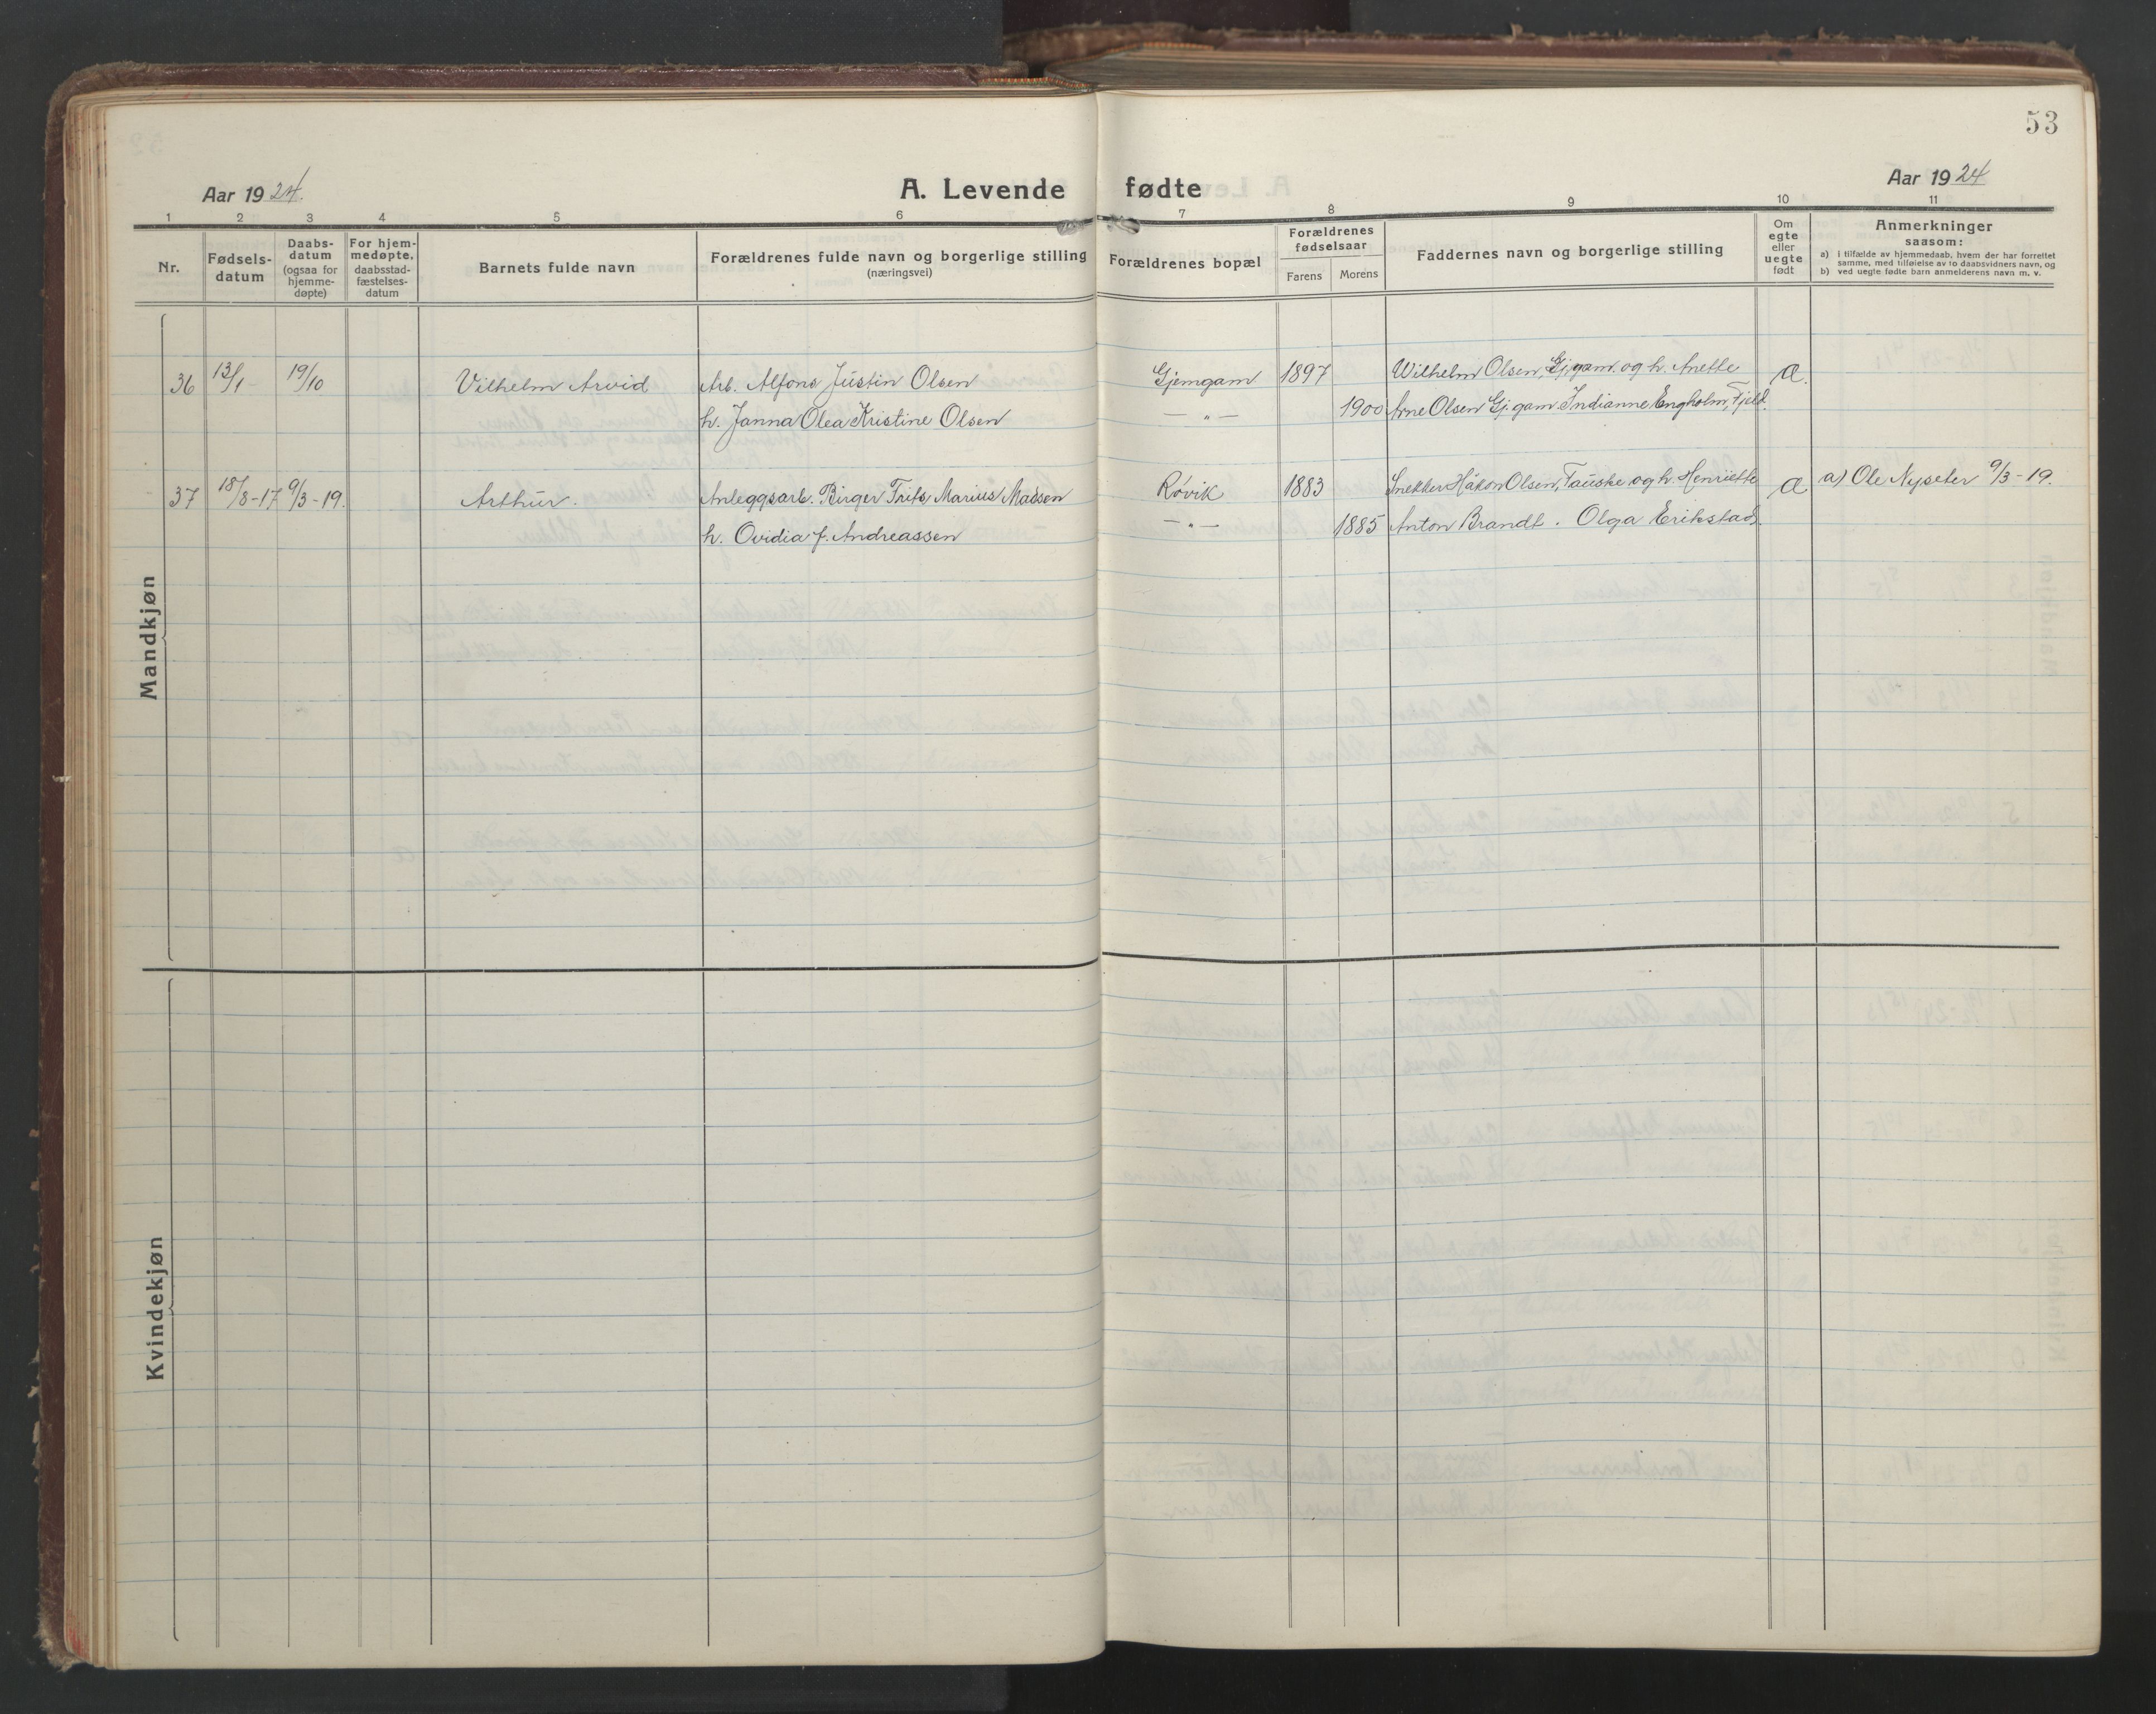 53
Aar 1924. A. Levende fødte Aar 1924
1 2 3 4 5 6 7 8 9 10 11
Nr.
Fødsels-
datum
Daabs-
datum
(ogsaa for
hjemme-
døpte)
For hjem-
medøpte,
daabsstad-
fæstelses-
datum
Barnets fulde navn
Forældrenes fulde navn og borgerlige stilling
(næringsvei)
Forældrenes bopæl
Forældrenes
fødselsaar
Farens Morens
Faddernes navn og borgerlige stilling
Om
egte
eller
uegte
født
Anmerkninger
saasom:
a) i tilfælde av hjemmedaab, hvem der har forrettet
samme, med tilføielse av to daabsvidners navn, og
b) ved uegte fødte barn anmelderens navn m. v.
Mandkjøn
36 13/1 - 19/10 Vilhelm Arvid Arb. Alfons Justin Olsen Gjemgam 1897 Wilhelm Olsen, Gj.gam. og h. Anette Æ.
h. Janna Olea Kristine Olsen — " — 1900 Arne Olsen Gj.gam. Indianne Engholm, Fjeld.
37 18/8-17 9/3-19. Arthur. Anleggsarb. Birger Frits Marius Madsen Røvik 1883 Snekker Håkon Olsen, Fauske og h. Henriette Æ a) Ole Nyseter 9/3-19.
h. Ovidia f. Andreassen — " — 1885 Anton Brandt. Olga Erikstad.
Kvindekjøn